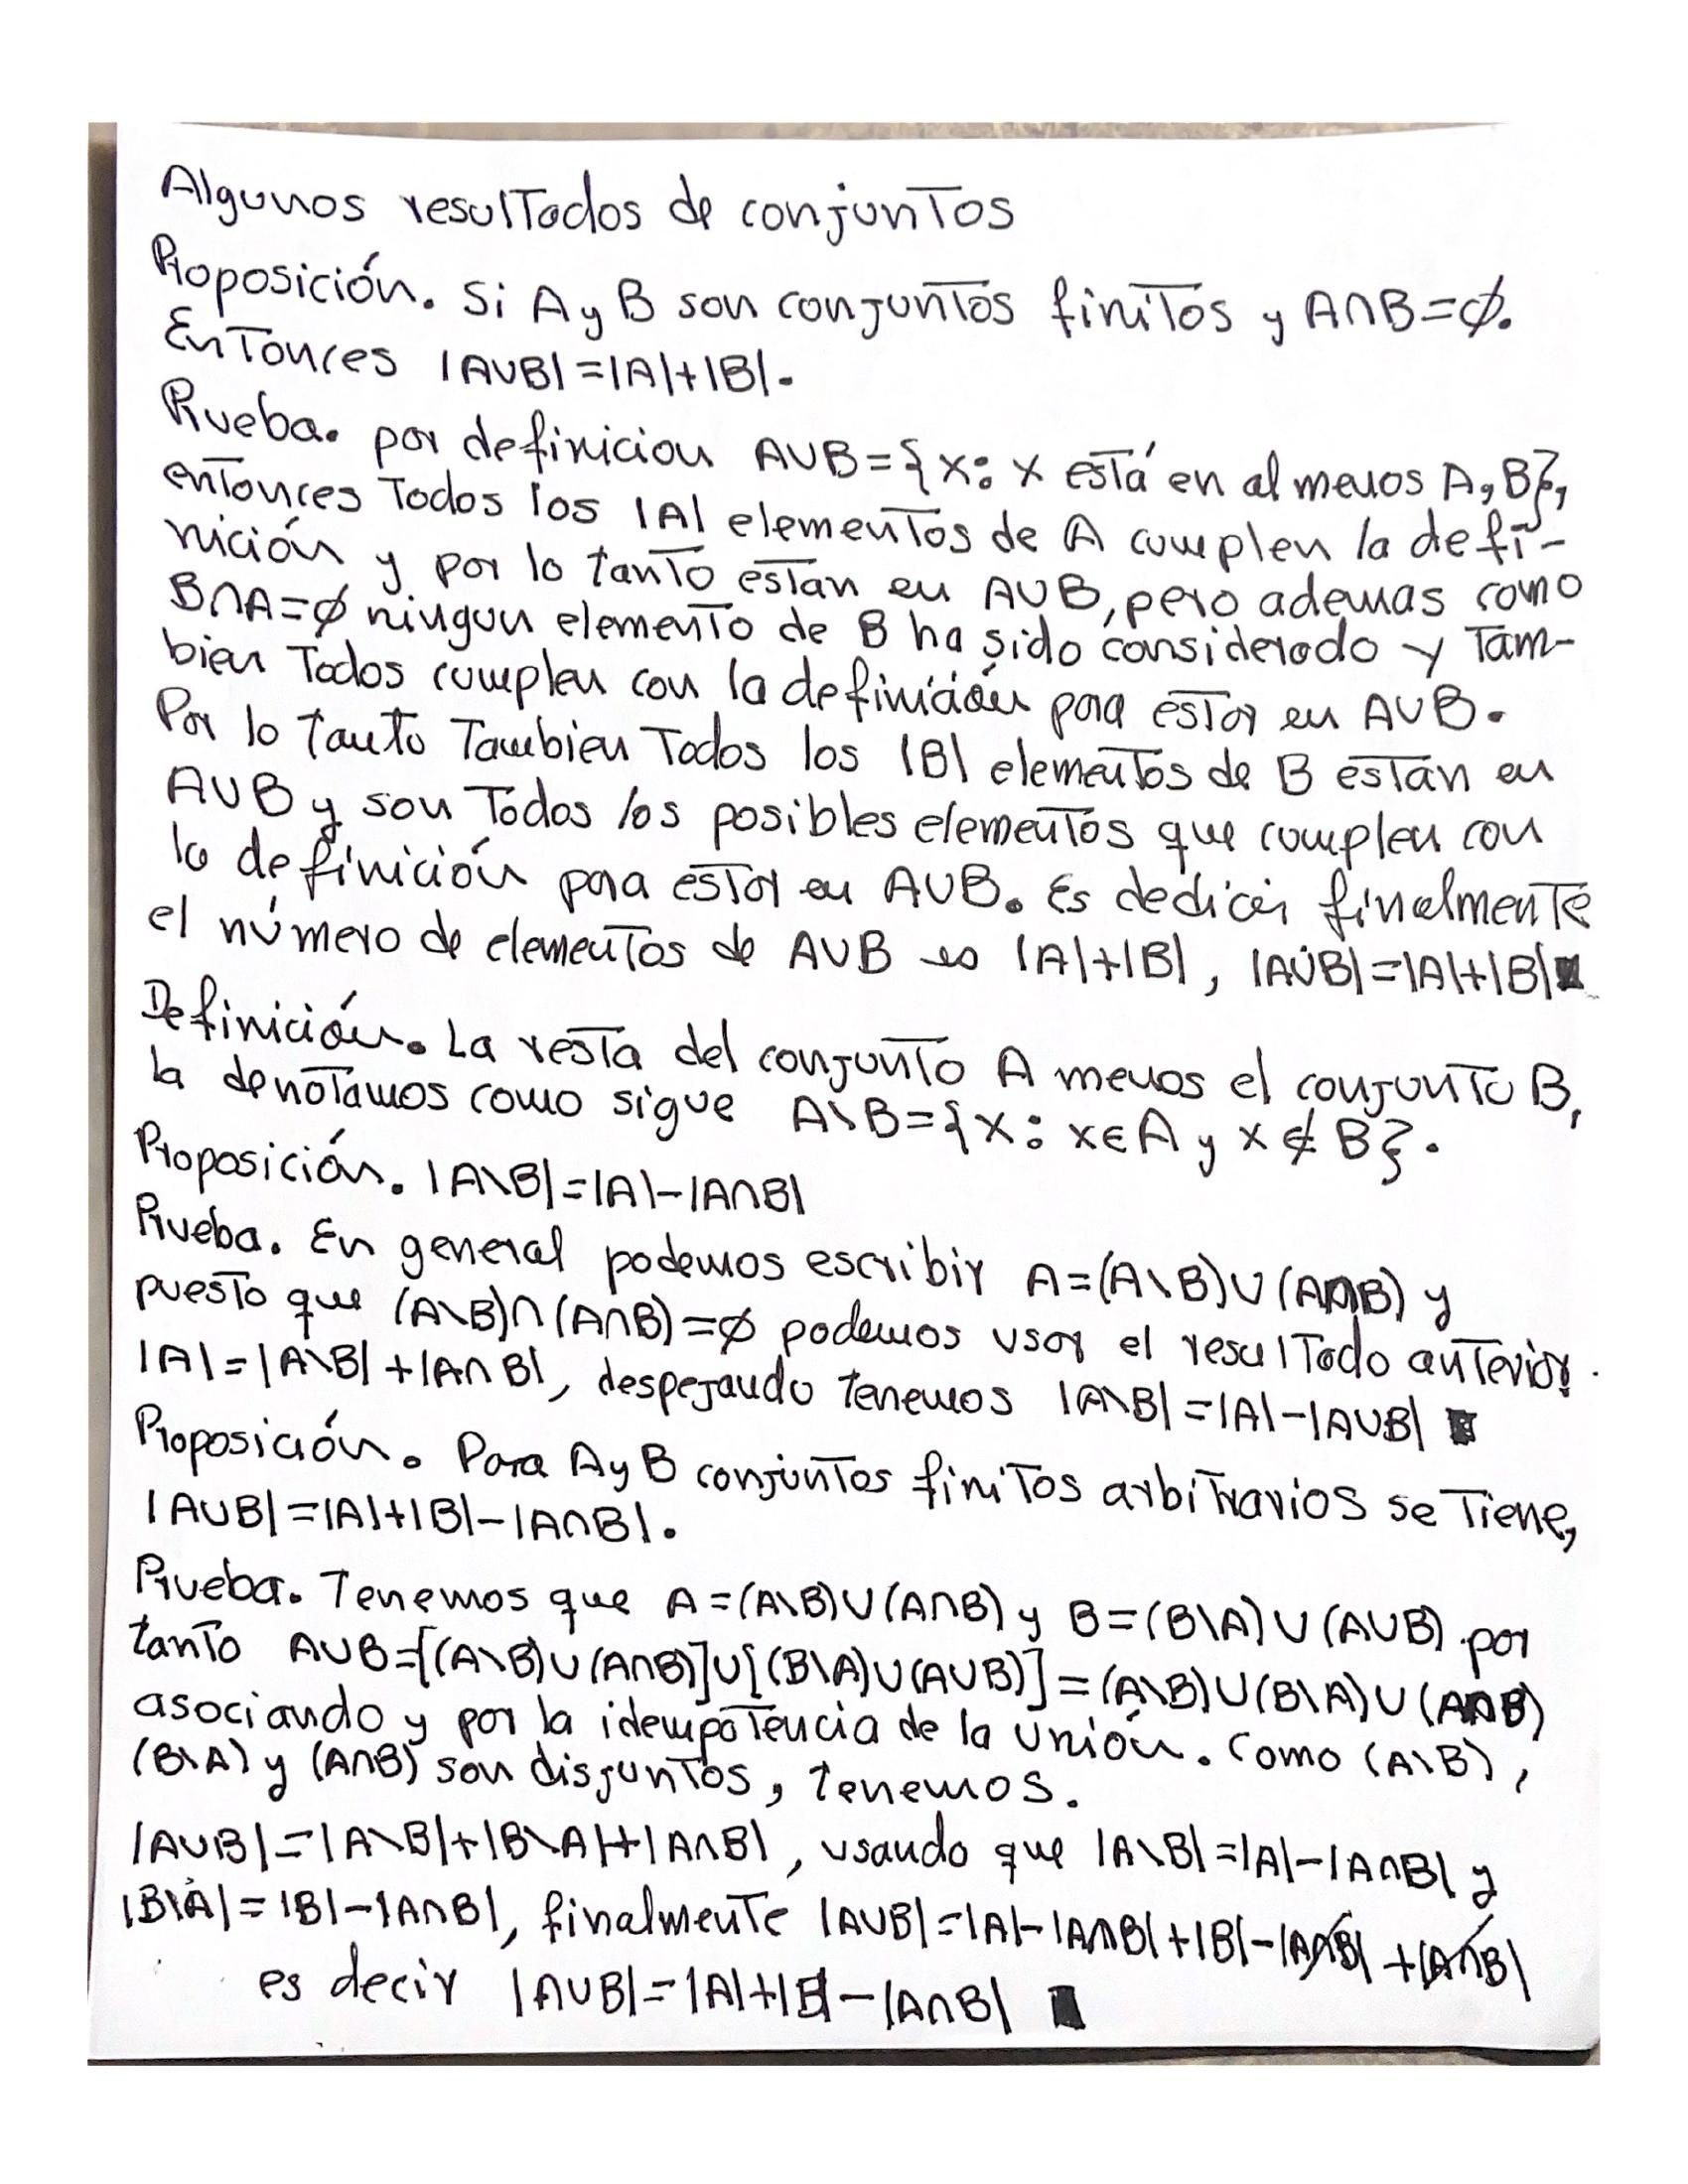 Algunos resultados de conjuntos
Proposición. Si A y B son conjuntos finitos y A∩B=∅.
Entonces |A∪B|=|A|+|B|.
Prueba. por definicion A∪B={x: x está en al menos A, B},
entonces Todos los |A| elementos de A cumplen la defi-
nición y por lo tanto estan en A∪B, pero ademas como
B∩A=∅ ningun elemento de B ha sido considerado y Tam-
bien Todos cumplen con la definición para estar en A∪B.
Por lo tanto Tambien Todos los |B| elementos de B estan en
A∪B y son Todos los posibles elementos que cumplen con
la definición para estar en A∪B. Es dedicir finalmente
el número de elementos de A∪B es |A|+|B|, |A∪B|=|A|+|B| ■
Definición. La resta del conjunto A menos el conjunto B,
la denotamos como sigue A\B={x: x∈A y x∉B}.
Proposición. |A\B|=|A|-|A∩B|
Prueba. En general podemos escribir A=(A\B)∪(A∩B) y
puesto que (A\B)∩(A∩B)=∅ podemos usar el resultado anterior.
|A|=|A\B|+|A∩B|, despejando tenemos |A\B|=|A|-|A∪B| ■
Proposición. Para A y B conjuntos finitos arbitrarios se Tiene,
|A∪B|=|A|+|B|-|A∩B|.
Prueba. Tenemos que A=(A\B)∪(A∩B) y B=(B\A)∪(A∪B) por
tanto A∪B=[(A\B)∪(A∩B)]∪[(B\A)∪(A∪B)]=(A\B)∪(B\A)∪(A∩B)
asociando y por la idempotencia de la unión. Como (A\B),
(B\A) y (A∩B) son disjuntos, tenemos.
|A∪B|=|A\B|+|B\A|+|A∩B|, usando que |A\B|=|A|-|A∩B| y
|B\A|=|B|-|A∩B|, finalmente |A∪B|=|A|-|A∩B|+|B|-|A∩B|+|A∩B|
es decir |A∪B|=|A|+|B|-|A∩B| ■